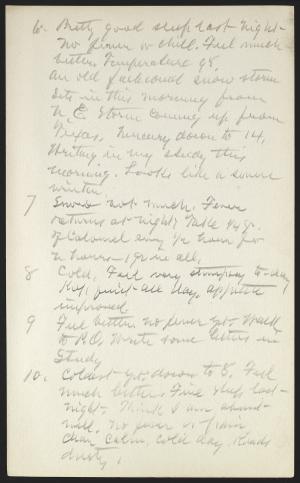 6. Pretty good sleep last night -
No fever or chill. Feel much
better. Temperature 98.
An old fashioned snow storm
sets in this morning from
N E. Storm coming up from
Texas. Mercury down to 14.
Writing in my study this
morning. Looks like a severe
winter.
7 Snow not much. Fever
returns at night, Take ¼ gr.
of Calomel every ½ hour for
hours - 1 gr in all.
8 Cold, Feel very slumpy to-day
Keep quiet all day, appetite
improved.
9 Feel better no fever yet. Walk
to P.O. Write some letters in
Study
10. Coldest yet down to 8. Feel
much better. Fine sleep last-
night. Think I am about
well. No fever
Clear calm, cold day. Roads
dusty.